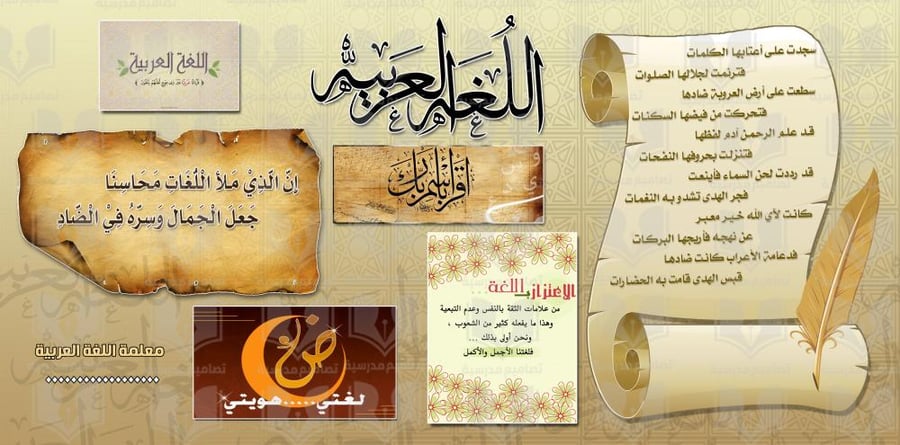 اللغة العربية
اللُغة العربية
سجدت على أعتابها الكلمات
فترنمت لجلالها الصلوات
سطعت على أرض العروبة ضادها
فتحركت من فيضها السكنات
قد علم الرحمن آدم لفظها
فتنزلت بحروفها النفحات
قد رددت لحن السماء فأينعت
فجر الهدى تشدو به النغمات
كانت لآي الله خير معبر
عن نهجه فأريجها البركات
فدعامة الأعراب كانت ضادها
قبس الهدى قامت به الحضارات
إِنّ الّذِيْ مَلأ الْلُغَاتِ مَحَاسِنَا
جَعَلَ الْجَمَالَ وَسِرّهُ فِيْ الْضّادِ
اقرأ باسم ربك
الإعتزاز بـ اللغة ..
من علامات الثقة بالنفس وعدم التبعية
وهذا ما يفعله كثير من الشعوب ،
ونحن أولى بذلك ...
فلغتنا الأجمل والأكمل
معلمة اللغة العربية
ض
لغتي.....هويتي
تصاميم مدرسية